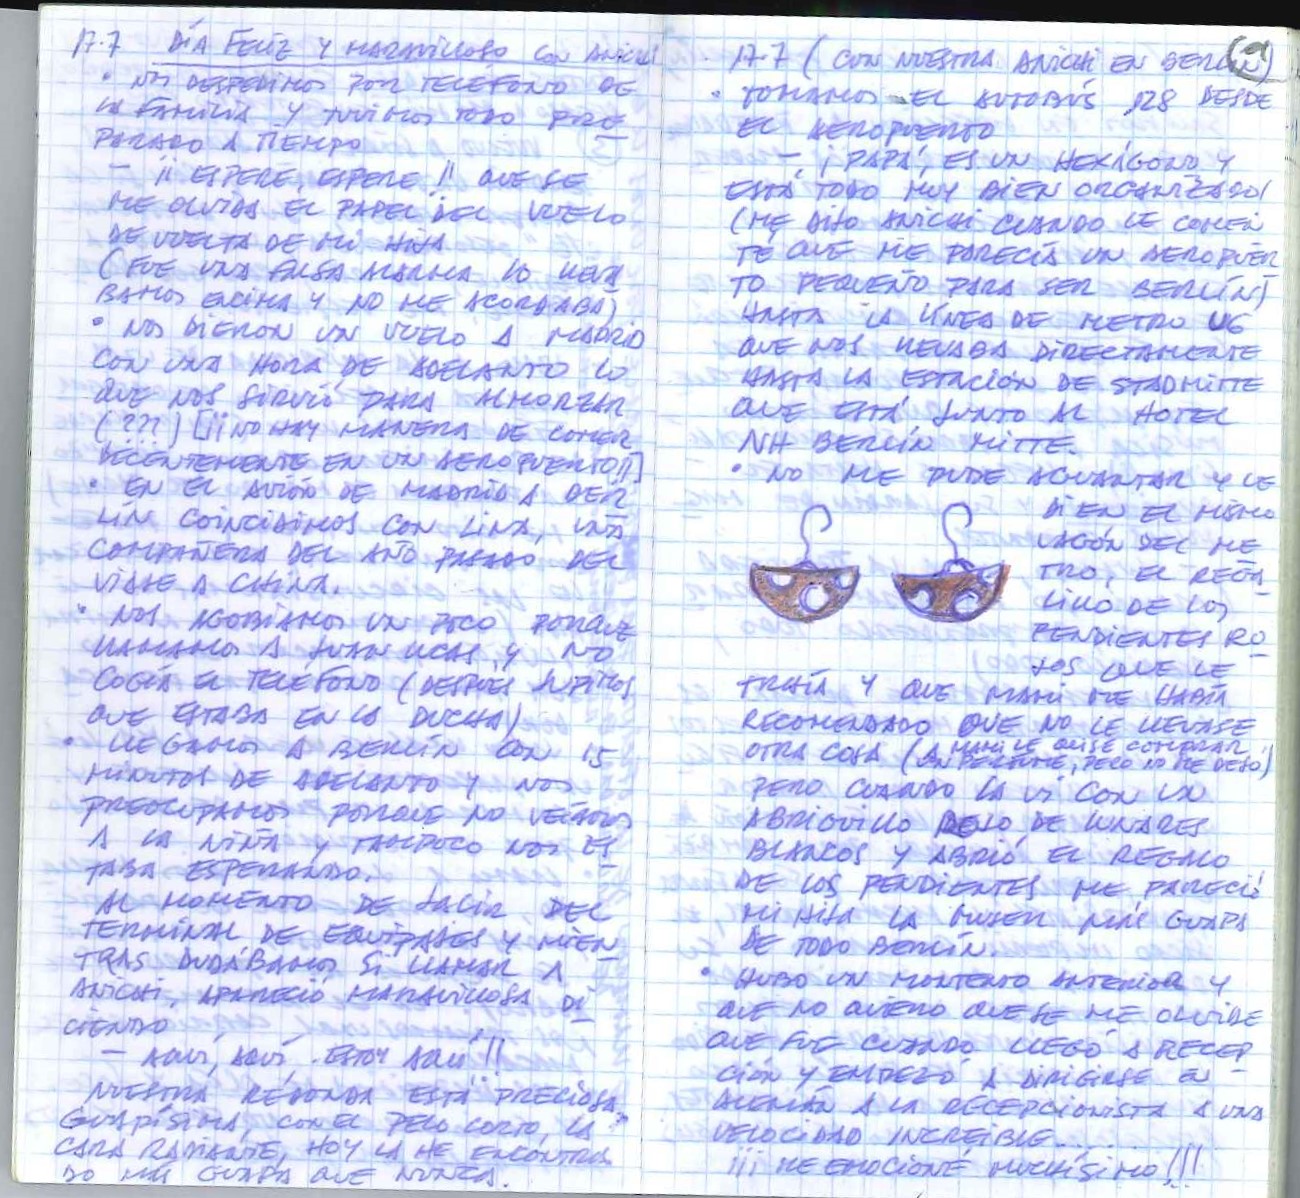 17.7 DÍA FELIZ Y MARAVILLOSO CON ANICHI
• NOS DESPEDIMOS POR TELÉFONO DE
LA FAMILIA Y TUVIMOS TODO PRE
PARADO A TIEMPO
– ¡¡ ESPERE, ESPERE !! QUE SE
ME OLVIDA EL PAPEL DEL VUELO
DE VUELTA DE MI HIJA
(FUE UNA FALSA ALARMA LO LLEVÁ
BAMOS ENCIMA Y NO ME ACORDABA)
• NOS DIERON UN VUELO A MADRID
CON UNA HORA DE ADELANTO LO
QUE NOS SIRVIÓ PARA ALMORZAR
(???) [¡¡NO HAY MANERA DE COMER
DECENTEMENTE EN UN AEROPUERTO!!]
• EN EL AVIÓN DE MADRID A BER
LÍN COINCIDIMOS CON LINA, UNA
COMPAÑERA DEL AÑO PASADO DEL
VIAJE A CHINA.
• NOS AGOBIAMOS UN POCO PORQUE
LLAMAMOS A JUAN LUCAS, Y NO
COGÍA EL TELÉFONO (DESPUÉS SUPIMOS
QUE ESTABA EN LA DUCHA)
• LLEGAMOS A BERLÍN CON 15
MINUTOS DE ADELANTO Y NOS
PREOCUPAMOS PORQUE NO VEÍAMOS
A LA NIÑA Y TAMPOCO NOS ES
TABA ESPERANDO.
AL MOMENTO DE SALIR DEL
TERMINAL DE EQUIPAJES Y MIEN
TRAS DUDÁBAMOS SI LLAMAR A
ANICHI, APARECIÓ MARAVILLOSA DI
CIENDO
– AQUÍ, AQUÍ, ESTOY AQUÍ !!
NUESTRA REDONDA ESTÁ PRECIOSA,
GUAPÍSIMA, CON EL PELO CORTO, LA
CARA RADIANTE, HOY LA HE ENCONTRA
DO MÁS GUAPA QUE NUNCA.
17.7 (CON NUESTRA ANICHI EN BERLÍN)
• TOMAMOS EL AUTOBÚS 128 DESDE
EL AEROPUERTO
– ¡PAPÁ, ES UN HEXÁGONO Y
ESTÁ TODO MUY BIEN ORGANIZADO!
(ME DIJO ANICHI CUANDO LE COMEN
TÉ QUE ME PARECÍA UN AEROPUER
TO PEQUEÑO PARA SER BERLÍN)
HASTA LA LÍNEA DE METRO U6
QUE NOS LLEVABA DIRECTAMENTE
HASTA LA ESTACIÓN DE STADMITTE
QUE ESTÁ JUNTO AL HOTEL
NH BERLÍN MITTE.
• NO ME PUDE AGUANTAR Y LE
DI EN EL MISMO
VAGÓN DEL ME
TRO, EL REGA
LITO DE LOS
PENDIENTES RO
JOS QUE LE
TRAÍA Y QUE MAMI ME HABÍA
RECOMENDADO QUE NO LE LLEVASE
OTRA COSA (A MAMI LE QUISE COMPRAR
UN PERFUME, PERO NO ME DEJÓ)
PERO CUANDO LA VI CON UN
ABRIGUILLO DE LUNARES
BLANCOS Y ABRIÓ EL REGALO
DE LOS PENDIENTES ME PARECIÓ
MI HIJA LA MUJER MÁS GUAPA
DE TODO BERLÍN.
• HUBO UN MOMENTO ANTERIOR Y
QUE NO QUIERO QUE SE ME OLVIDE
QUE FUE CUANDO LLEGÓ A RECEP
CIÓN Y EMPEZÓ A DIRIGIRSE EN
ALEMÁN A LA RECEPCIONISTA A UNA
VELOCIDAD INCREÍBLE.....
¡¡¡ ME EMOCIONÉ MUCHÍSIMO !!!